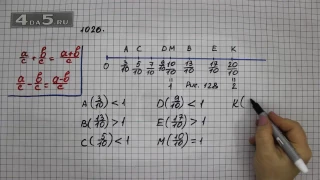 4DA5.RU
1026.
a/c + b/c = a+b/c
a/c - b/c = a-b/c
A C D M B E K
0 3/10 5/10 7/10 9/10 10/10 13/10 17/10 20/10
1 Рис. 128 2
A(3/10) < 1 D(9/10) < 1 K(
B(13/10) > 1 E(17/10) > 1
C(5/10) < 1 M(10/10) = 1